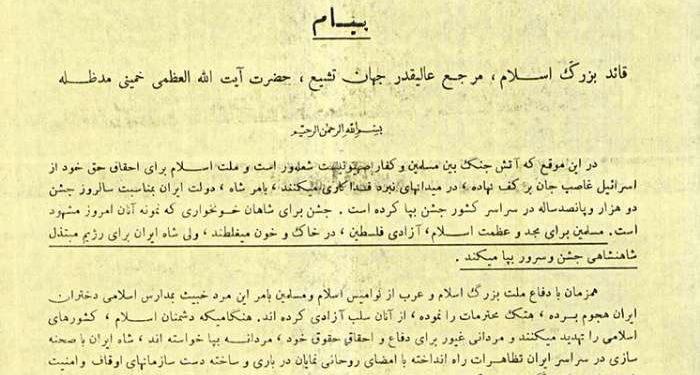 پیام
قائد بزرگ اسلام ، مرجع عالیقدر جهان تشیع ، حضرت آیت الله العظمی خمینی مدظله
بسم الله الرحمن الرحیم
در این موقع که آتش جنگ بین مسلمین و کفار صهیونیست شعله‌ور است و ملت اسلام برای احقاق حق خود از
اسرائیل غاصب جان بر کف نهاده ، در میدانهای نبرد فداکاری میکنند ، بامر شاه ، دولت ایران بمناسبت سالروز جشن
دو هزار و پانصدساله در سراسر کشور جشن بپا کرده است . جشن برای شاهان خونخواری که نمونه آنان امروز مشهود
است . مسلمین برای مجد و عظمت اسلام ، آزادی فلسطین ، در خاک و خون میغلطند ، ولی شاه ایران برای رژیم مبتذل
شاهنشاهی جشن و سرور بپا میکند .
همزمان با دفاع ملت بزرگ اسلام و عرب از نوامیس اسلام و مسلمین بامر این مرد خبیث بمدارس اسلامی دختران
ایران هجوم برده ، هتک محترمات را نموده ، از آنان سلب آزادی کرده اند . هنگامیکه دشمنان اسلام ، کشورهای
اسلامی را تهدید میکنند و مردانی غیور برای دفاع و احقاق حقوق خود ، مردانه بپا خواسته اند ، شاه ایران با صحنه
سازی در سراسر ایران تظاهرات راه انداخته با امضای روحانی نمایان درباری و ساخته دست سازمانهای اوقاف و امنیت